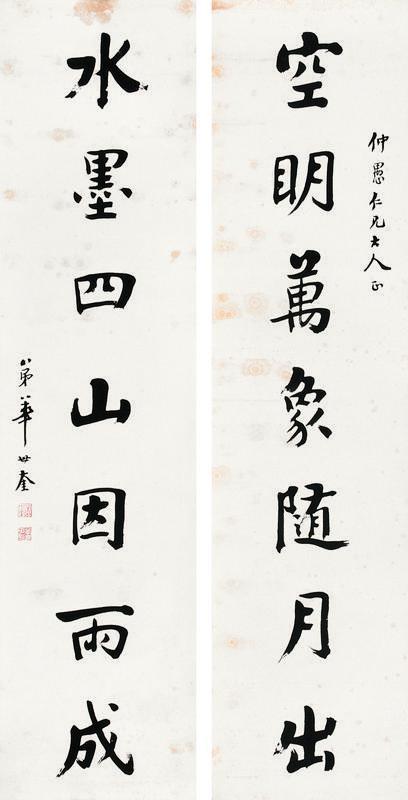 仲愚仁兄大人正
空明萬象随月出
水墨四山因雨成
弟華世奎